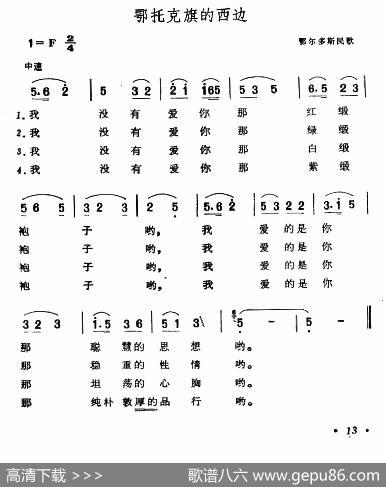 鄂托克旗的西边
1=F 2/4
鄂尔多斯民歌
中速
5.6 2 5 3 2 2 1 165 5 3 5 6.5 2 3
1.我 没 有 爱 你 那 红 缎
2.我 没 有 爱 你 那 绿 缎
3.我 没 有 爱 你 那 白 缎
4.我 没 有 爱 你 那 紫 缎
5 6 5 3 2 3 2 5 5.6 2 5 3 2 2 3.1 5
袍 子 哟, 我 爱 的 是 你
袍 子 哟, 我 爱 的 是 你
袍 子 哟, 我 爱 的 是 你
袍 子 哟, 我 爱 的 是 你
3 2 3 1.5 3 6 5 1 3 5 - 5 -
那 聪 慧的 思 想 哟。
那 稳 重的 性 情 哟。
那 坦 荡的 心 胸 哟。
那 纯朴 敦厚的 品 行 哟。
• 13 •
高清下载 >>>>
歌谱八六 www.gepu86.com